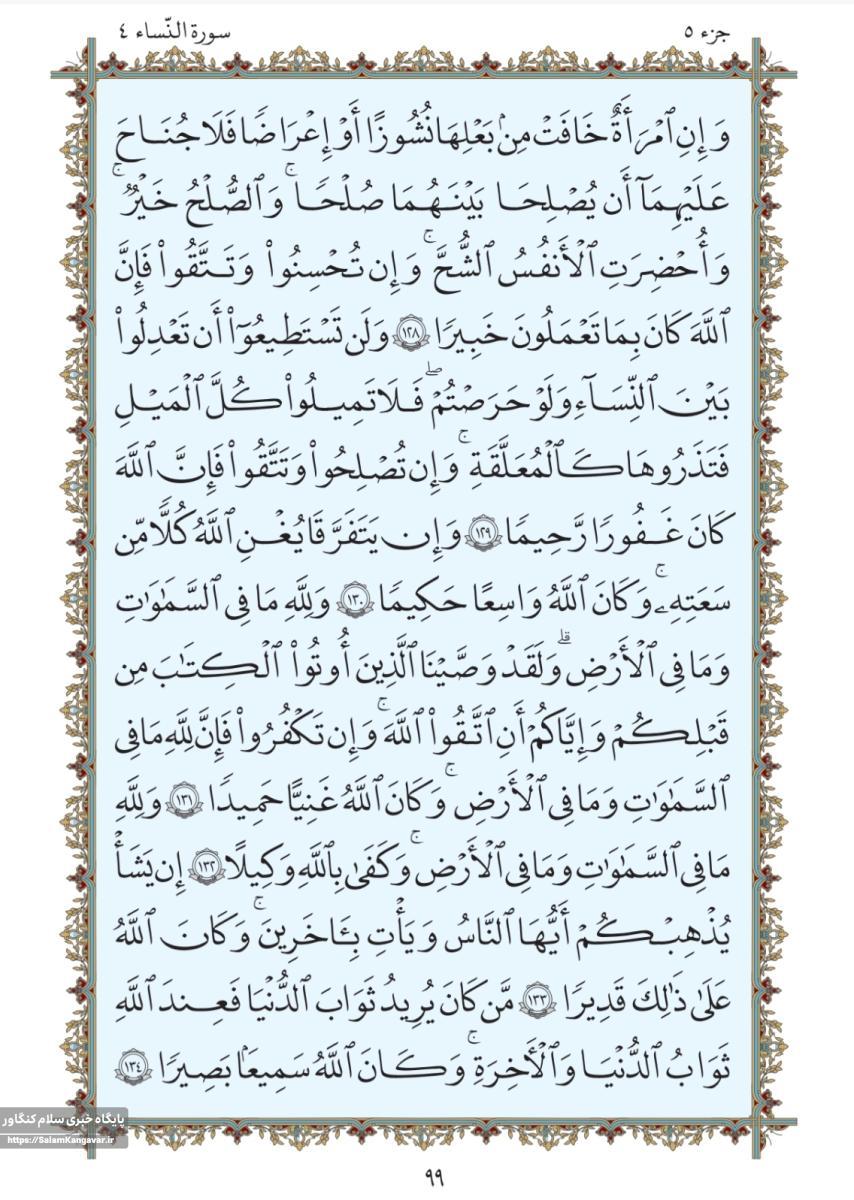 جزء ٥
سورة النّساء ٤
وَإِنِ ٱمۡرَأَةٌ خَافَتۡ مِنۢ بَعۡلِهَا نُشُوزًا أَوۡ إِعۡرَاضٗا فَلَا جُنَاحَ
عَلَيۡهِمَآ أَن يُصۡلِحَا بَيۡنَهُمَا صُلۡحٗاۚ وَٱلصُّلۡحُ خَيۡرٞۗ
وَأُحۡضِرَتِ ٱلۡأَنفُسُ ٱلشُّحَّۚ وَإِن تُحۡسِنُواْ وَتَتَّقُواْ فَإِنَّ
ٱللَّهَ كَانَ بِمَا تَعۡمَلُونَ خَبِيرٗا ١٢٨ وَلَن تَسۡتَطِيعُوٓاْ أَن تَعۡدِلُواْ
بَيۡنَ ٱلنِّسَآءِ وَلَوۡ حَرَصۡتُمۡۖ فَلَا تَمِيلُواْ كُلَّ ٱلۡمَيۡلِ
فَتَذَرُوهَا كَٱلۡمُعَلَّقَةِۚ وَإِن تُصۡلِحُواْ وَتَتَّقُواْ فَإِنَّ ٱللَّهَ
كَانَ غَفُورٗا رَّحِيمٗا ١٢٩ وَإِن يَتَفَرَّقَا يُغۡنِ ٱللَّهُ كُلّٗا مِّن
سَعَتِهِۦۚ وَكَانَ ٱللَّهُ وَٰسِعًا حَكِيمٗا ١٣٠ وَلِلَّهِ مَا فِي ٱلسَّمَٰوَٰتِ
وَمَا فِي ٱلۡأَرۡضِۗ وَلَقَدۡ وَصَّيۡنَا ٱلَّذِينَ أُوتُواْ ٱلۡكِتَٰبَ مِن
قَبۡلِكُمۡ وَإِيَّاكُمۡ أَنِ ٱتَّقُواْ ٱللَّهَۚ وَإِن تَكۡفُرُواْ فَإِنَّ لِلَّهِ مَا فِي
ٱلسَّمَٰوَٰتِ وَمَا فِي ٱلۡأَرۡضِۚ وَكَانَ ٱللَّهُ غَنِيًّا حَمِيدٗا ١٣١ وَلِلَّهِ
مَا فِي ٱلسَّمَٰوَٰتِ وَمَا فِي ٱلۡأَرۡضِۚ وَكَفَىٰ بِٱللَّهِ وَكِيلًا ١٣٢ إِن يَشَأۡ
يُذۡهِبۡكُمۡ أَيُّهَا ٱلنَّاسُ وَيَأۡتِ بِـَٔاخَرِينَۚ وَكَانَ ٱللَّهُ
عَلَىٰ ذَٰلِكَ قَدِيرٗا ١٣٣ مَّن كَانَ يُرِيدُ ثَوَابَ ٱلدُّنۡيَا فَعِندَ ٱللَّهِ
ثَوَابُ ٱلدُّنۡيَا وَٱلۡأٓخِرَةِۚ وَكَانَ ٱللَّهُ سَمِيعَۢا بَصِيرٗا ١٣٤
پایگاه خبری سلام کنگاور
https://SalamKangavar.ir
٩٩